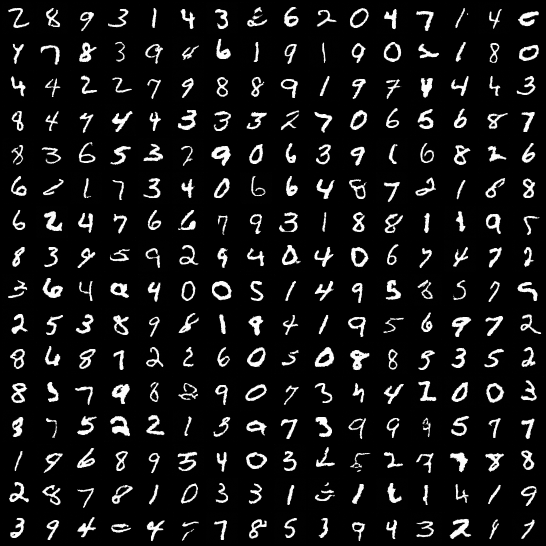 2 8 9 3 1 4 3 2 6 2 0 4 7 1 4
4 7 8 3 9 4 6 1 9 1 9 0 2 1 8 0
4 4 2 2 7 9 8 8 9 1 9 7 4 4 4 3
8 4 4 4 4 3 3 3 2 7 0 6 5 6 8 7
8 3 6 5 3 7 9 0 6 3 9 1 6 8 2 6
6 1 7 3 4 0 6 6 4 8 7 2 1 8 8
6 2 4 7 6 6 7 9 3 1 8 8 1 1 9 5
8 3 9 5 9 2 9 4 0 4 0 6 7 4 7 2
3 6 4 a 4 0 0 5 1 4 9 5 8 5 7 9
2 5 3 8 9 8 1 9 4 1 9 5 6 9 7 2
8 6 8 7 2 2 6 0 5 0 8 8 9 3 5 2
8 5 7 9 8 2 9 0 7 3 4 2 0 0 3
8 7 5 2 2 1 3 9 7 3 9 9 9 5 7 7
1 9 6 8 9 5 4 0 3 2 5 2 7 7 8 8
2 8 7 8 1 0 3 3 1 1 6 1 4 1 9
3 9 4 4 7 8 5 3 9 4 3 2 9 7